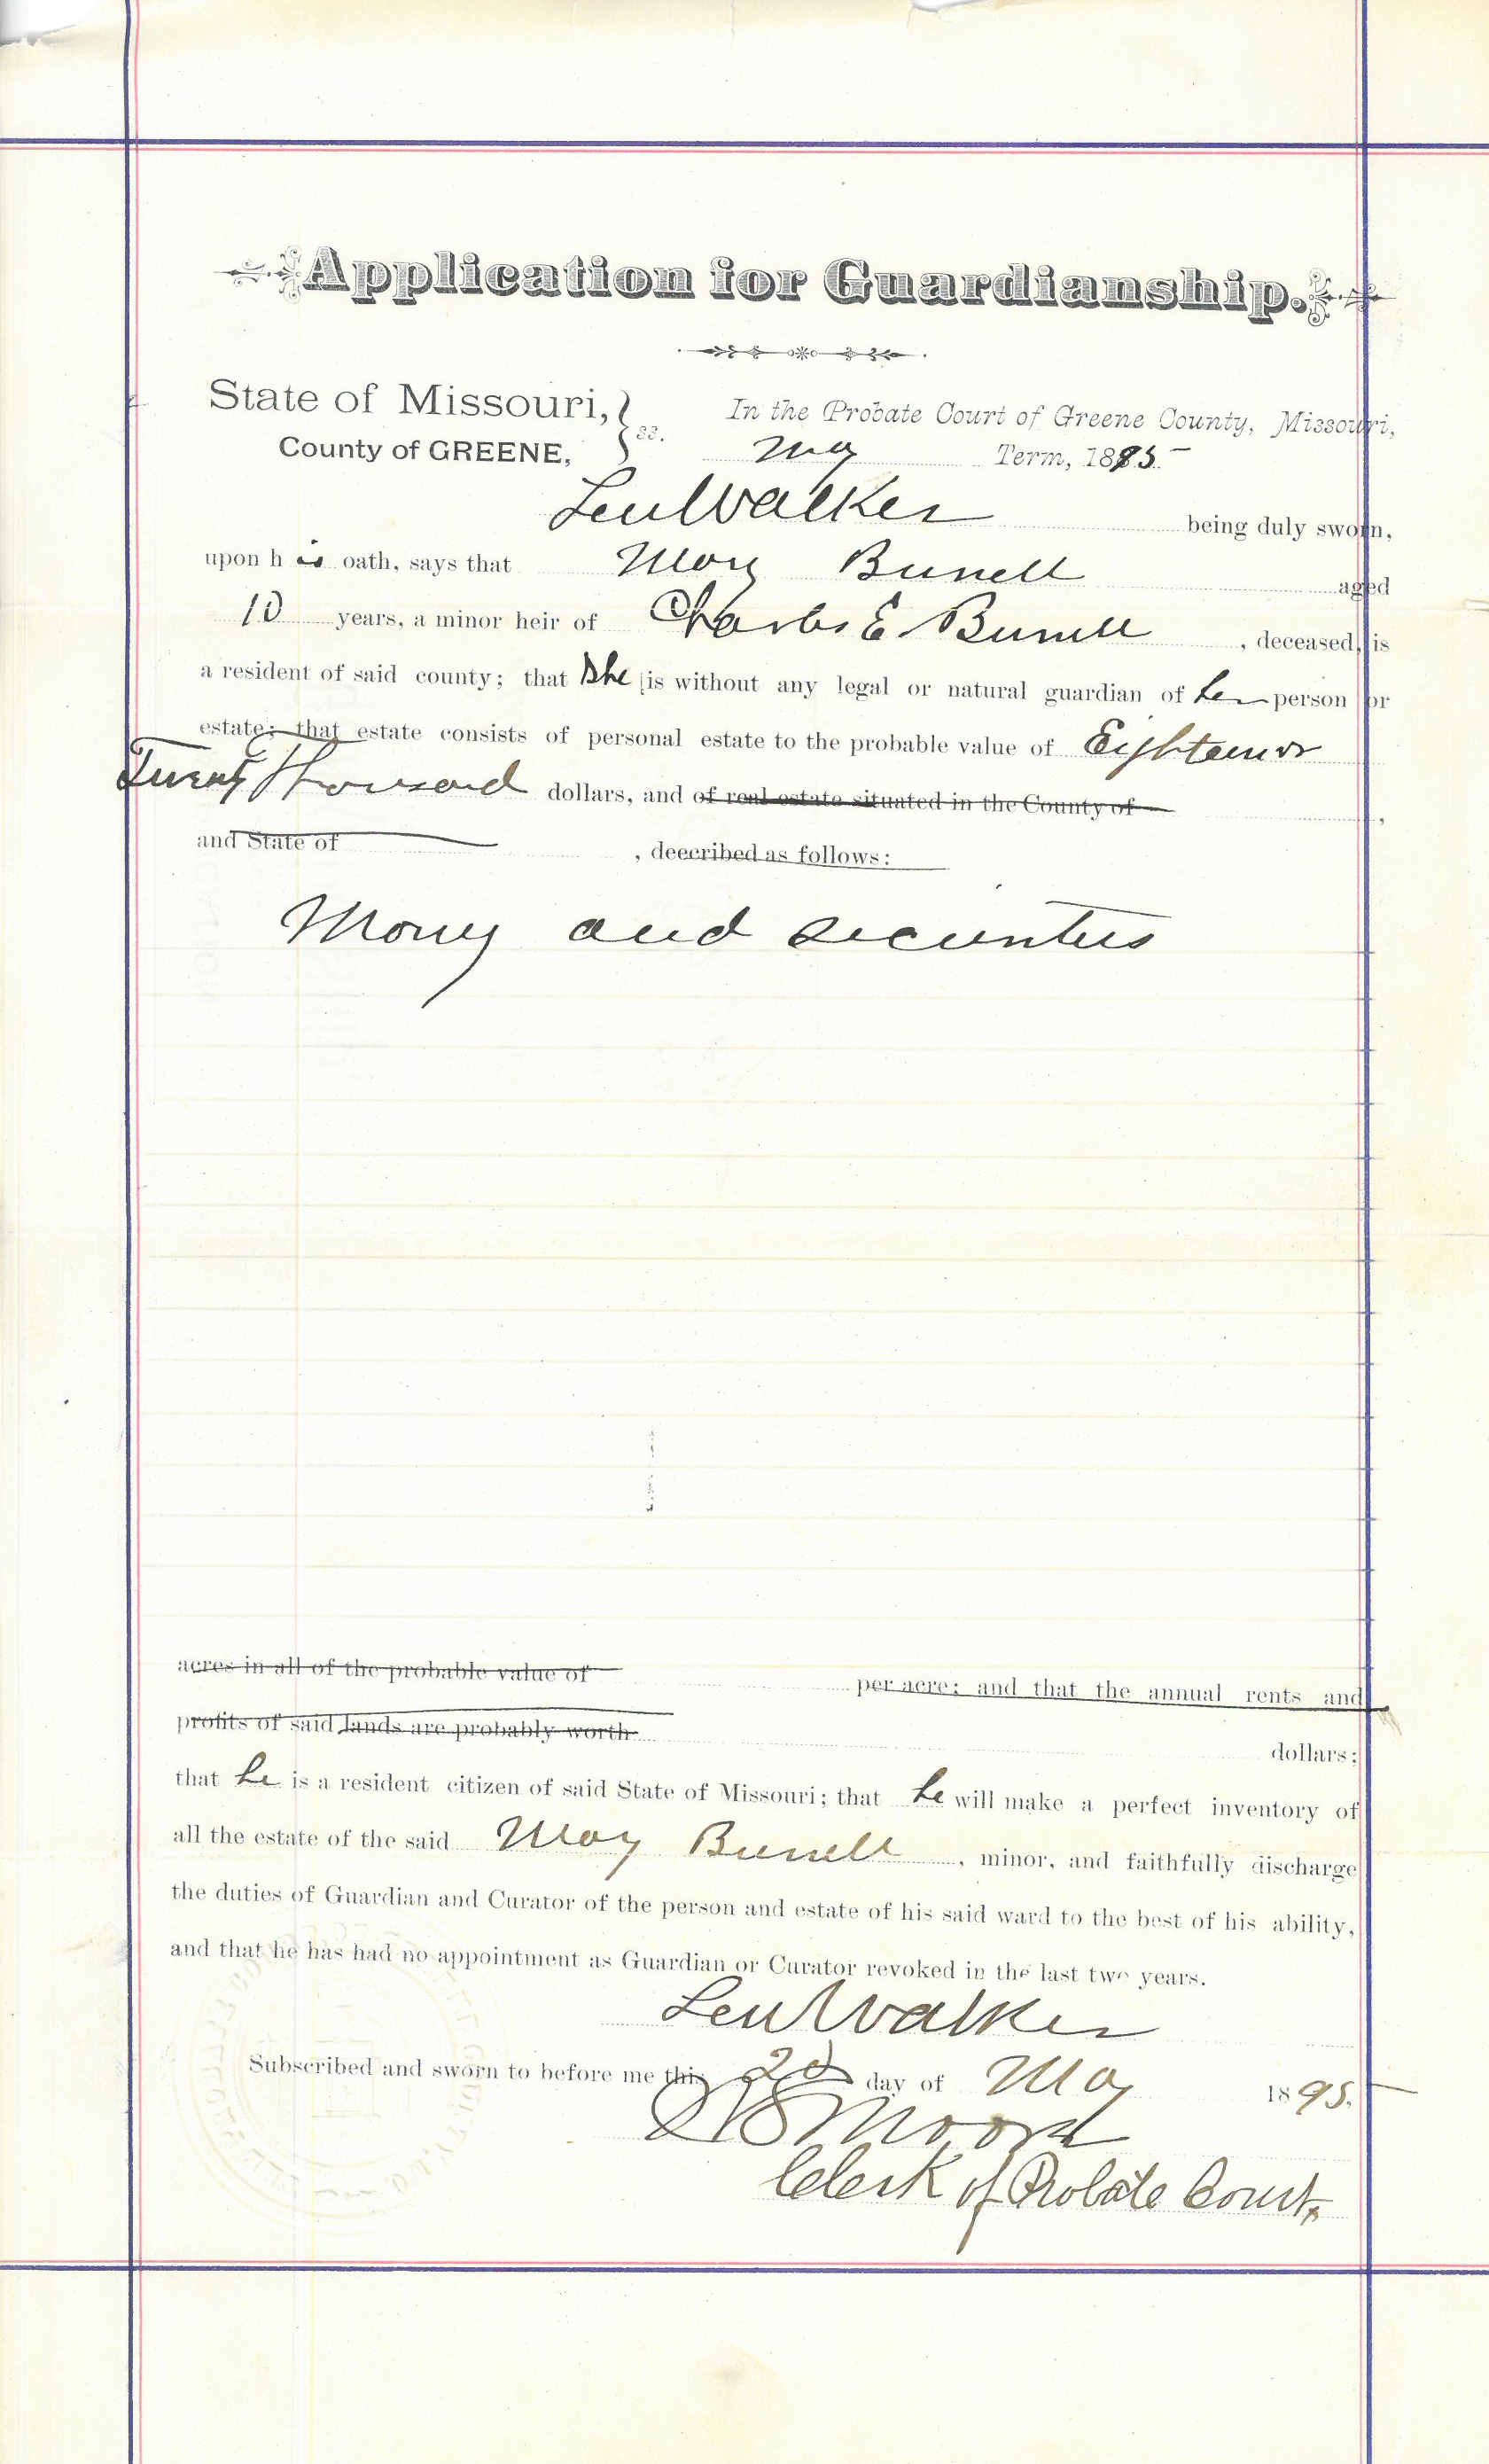 Application for Guardianship.
State of Missouri, } ss. In the Probate Court of Greene County, Missouri,
County of GREENE, May Term, 1895
Len Walker being duly sworn,
upon his oath, says that Mary Burrell aged
10 years, a minor heir of Charles E Burrell, deceased, is
a resident of said county; that She is without any legal or natural guardian of her person or
estate; that estate consists of personal estate to the probable value of Eighteen or
Twenty Thousand dollars, and of real estate situated in the County of ,
and State of , deecribed as follows:
Money and securities
acres in all of the probable value of per acre; and that the annual rents and
profits of said lands are probably worth dollars;
that he is a resident citizen of said State of Missouri; that he will make a perfect inventory of
all the estate of the said Mary Burrell, minor, and faithfully discharge
the duties of Guardian and Curator of the person and estate of his said ward to the best of his ability,
and that he has had no appointment as Guardian or Curator revoked in the last two years.
Len Walker
Subscribed and sworn to before me this day of May 1895.
Moore
Clerk of Probate Court.